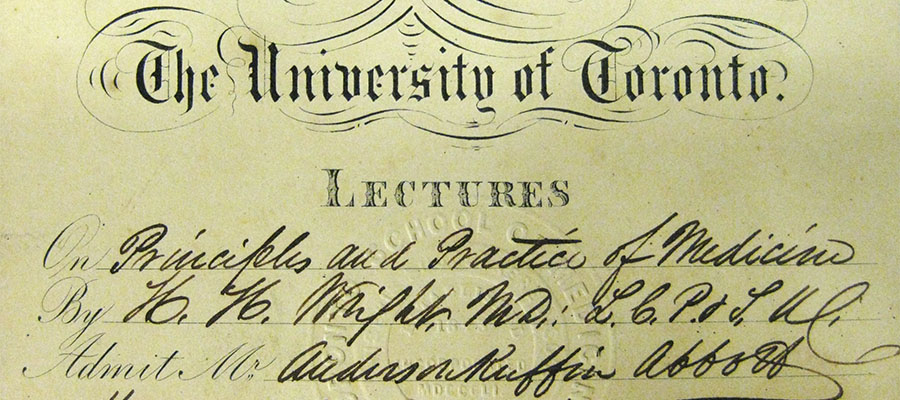 The University of Toronto.
LECTURES
On Principles and Practice of Medicine
By H. H. Wright, M.D.: L. C. P. & S. U C.
Admit Mr. Anderson Ruffin Abbott